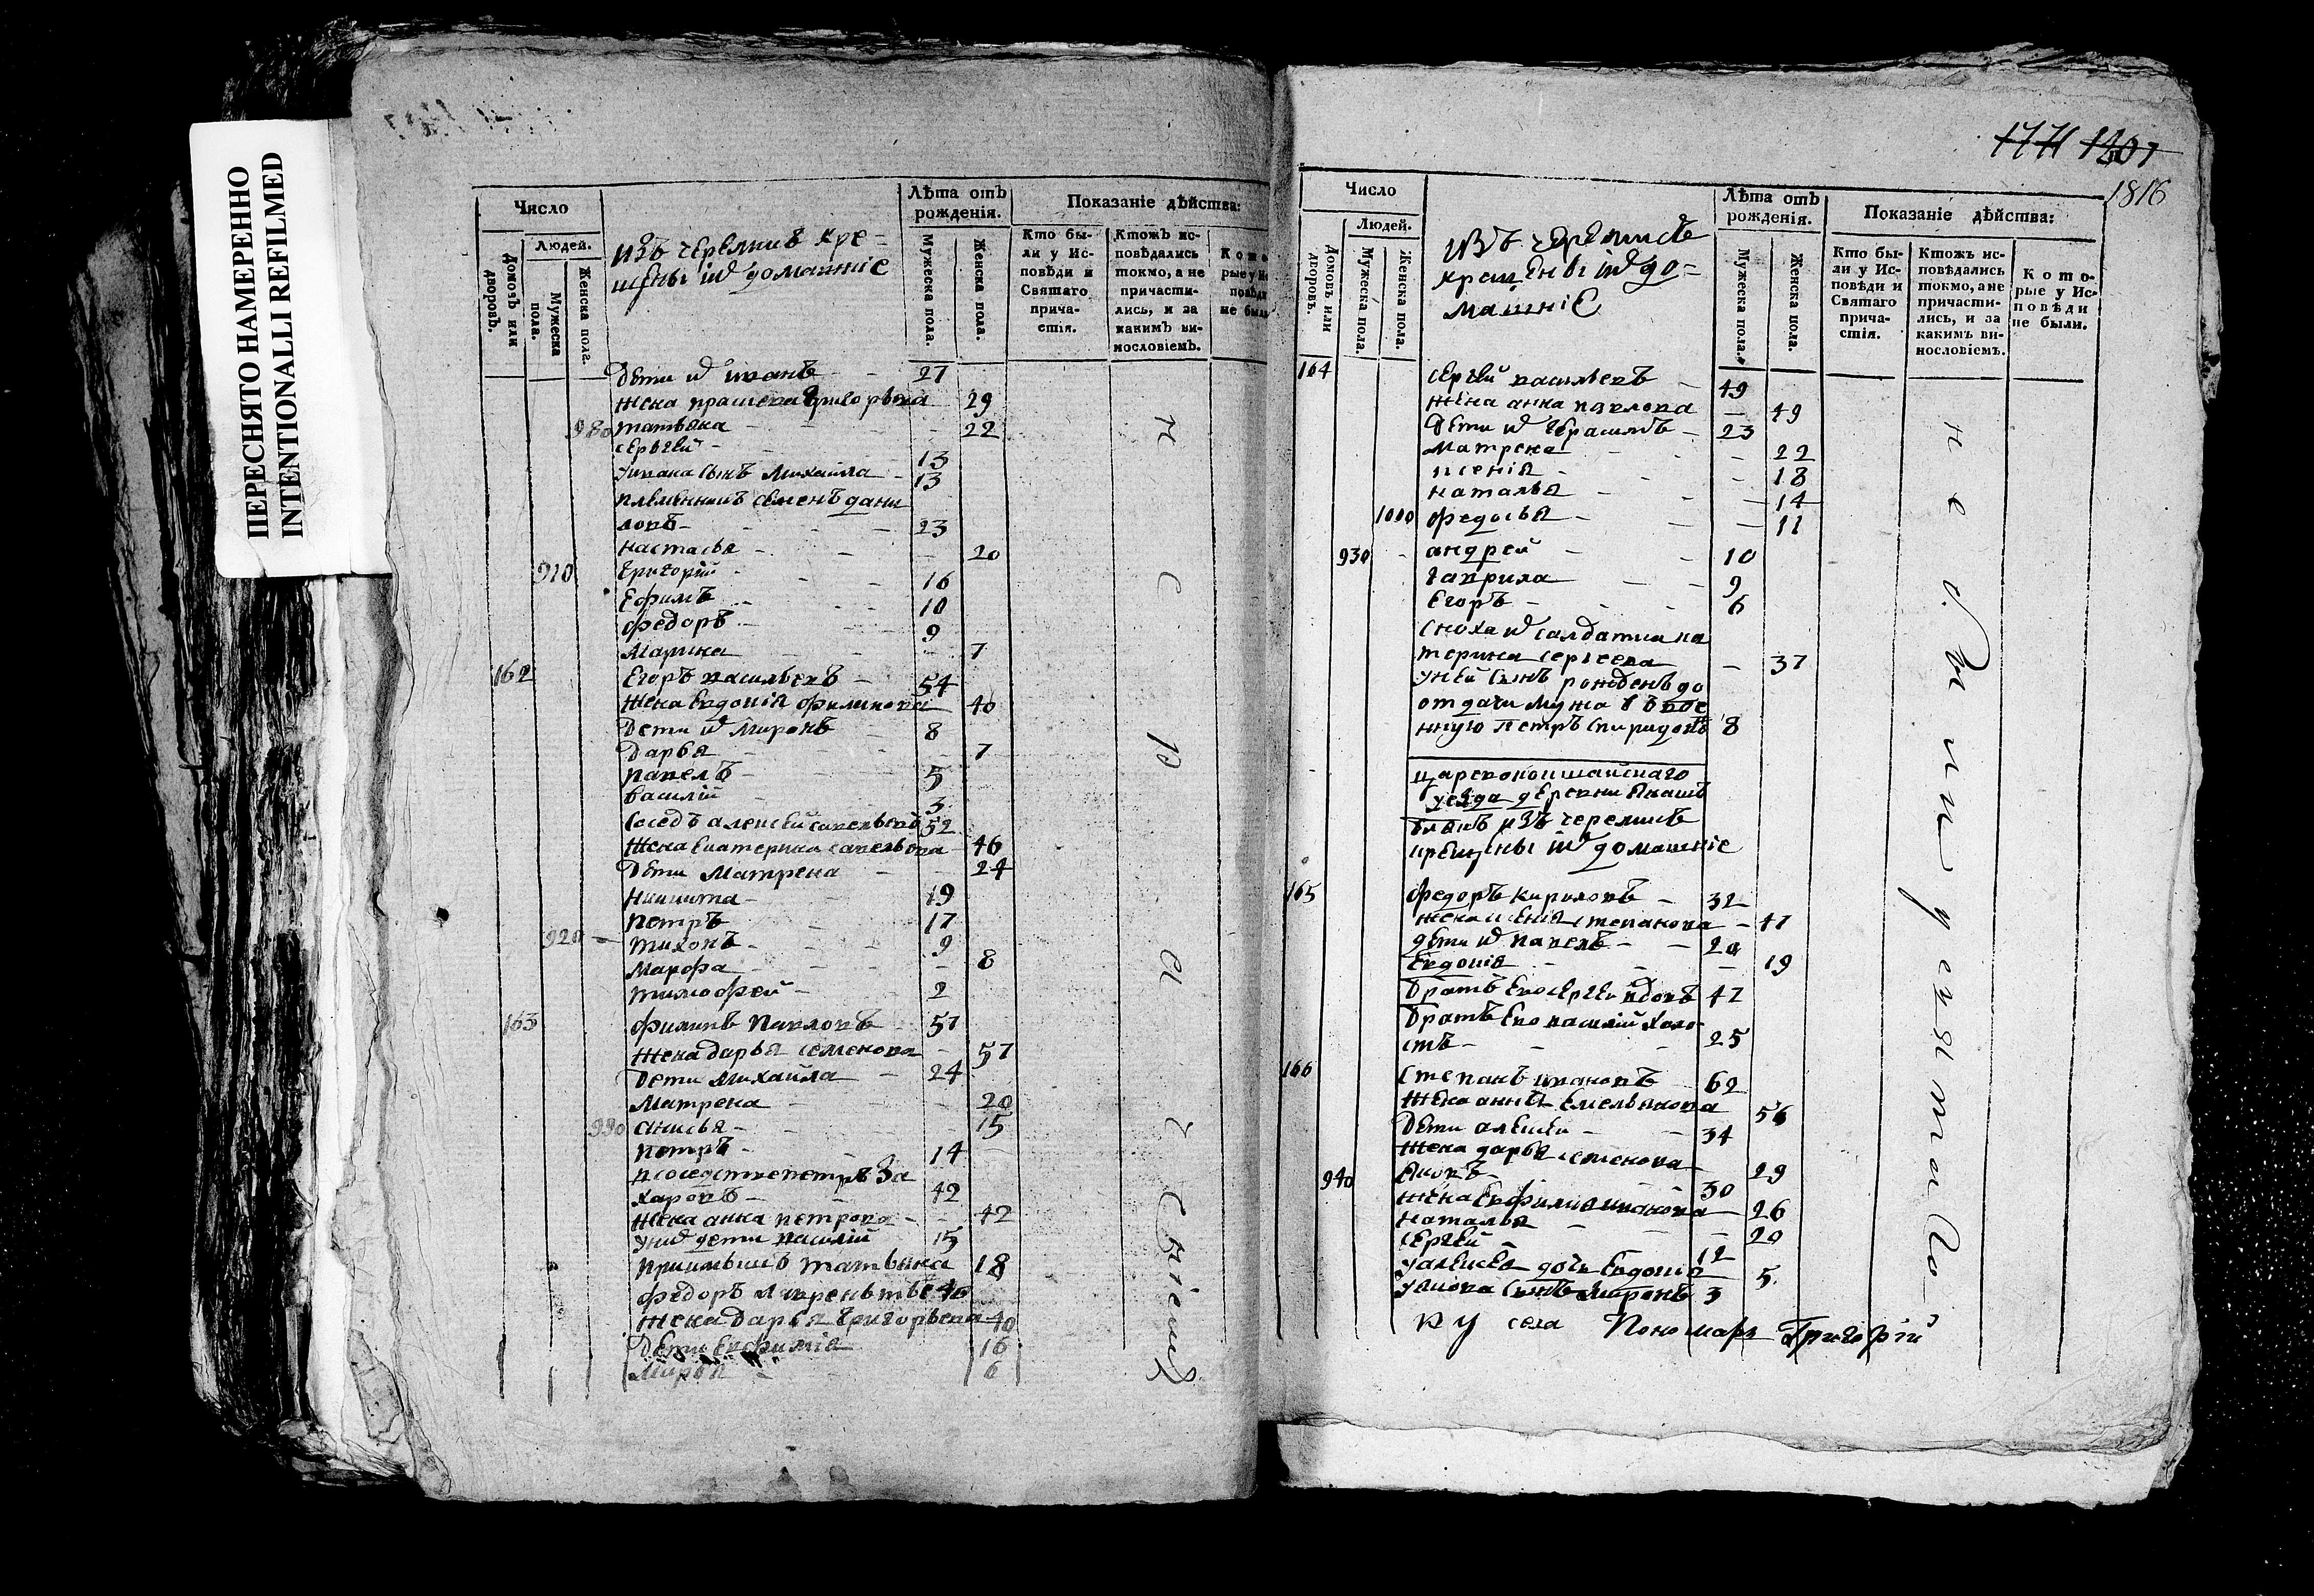 ПЕРЕСНЯТО НАМЕРЕННО
INTENTIONALLI REFILMED
Число
Людей.
Домовъ или дворовъ.
Мужеска пола.
Женска пола.
изъ черемисъ кре-
щены ихъ домашнiе
Лѣта отъ рожденiя.
Мужеска пола.
Женска пола.
Показанiе дѣйства:
Кто бы-
ли у Ис-
повѣди и
Святаго
прича-
стiя.
Ктожъ ис-
повѣдались
токмо, а не
причасти-
лись, и за
какимъ ви-
нословiемъ.
дети их иванъ 27
жена прасковья григорьева 29
980 татьяна 22
сергей 13
у ивана сынъ михайла 13
племянникъ семенъ дани
ловъ 23
настасья 20
910 григорiй 16
ефимъ 10
федоръ 9
марина 7
162 егоръ васильевъ 54
жена евдокiя филипова 40
дети их миронъ 8
дарья 7
павелъ 5
василiй 3
соседъ алексей савельевъ 52
жена екатерина савельева 46
дети матрена 24
никита 19
петръ 17
920 тихонъ 9
марфа 8
тимофей 2
163 филипъ павловъ 57
жена дарья семенова 57
дети михайла 24
матрена 20
990 анисья 15
петръ 14
в соседстве петръ за
харовъ 42
жена анна петрова 42
у них дети василiй 15
татьяна 18
федоръ
жена дарья григорьева 40
дети евфимiя 16
6
1771 1201
1816
Число
Людей.
Домовъ или дворовъ.
Мужеска пола.
Женска пола.
изъ черемисъ
крещены их до-
машнiе
Лѣта отъ рожденiя.
Мужеска пола.
Женска пола.
Показанiе дѣйства:
Кто бы-
ли у Ис-
повѣди и
Святаго
прича-
стiя.
Ктожъ ис-
повѣдались
токмо, а не
причасти-
лись, и за
какимъ ви-
нословiемъ.
Кото-
рые у Ис-
повѣди
не были.
164 сергей васильевъ 49
жена анна павлова 49
дети их герасимъ 23
матрена 22
ксенiя 18
наталья 14
1000 федосья 11
930 андрей 10
гаврила 9
егоръ 6
сноха их салдатка ка
терина сергеева 37
у ней сынъ рожденъ до
отдачи мужа в вое
нную петръ спиридовъ 8
царевококшайскаго
уезда деревни
изъ черемисъ
крещены их домашнiе
165 федоръ кириловъ 32
жена ксенiя степанова 47
дети их павелъ 20
евдокiя 19
братъ ево сергей вдовъ 47
братъ ево василiй холо
стъ 25
166 степанъ ивановъ 62
жена анна емельянова 56
дети алексей 34
жена дарья семенова 29
940 яковъ 30
жена евфимия иванова 26
наталья 20
сергей 12
у алексея дочь евдокiя 5
у якова сынъ миронъ 3
ку села Пономарь Григорiй